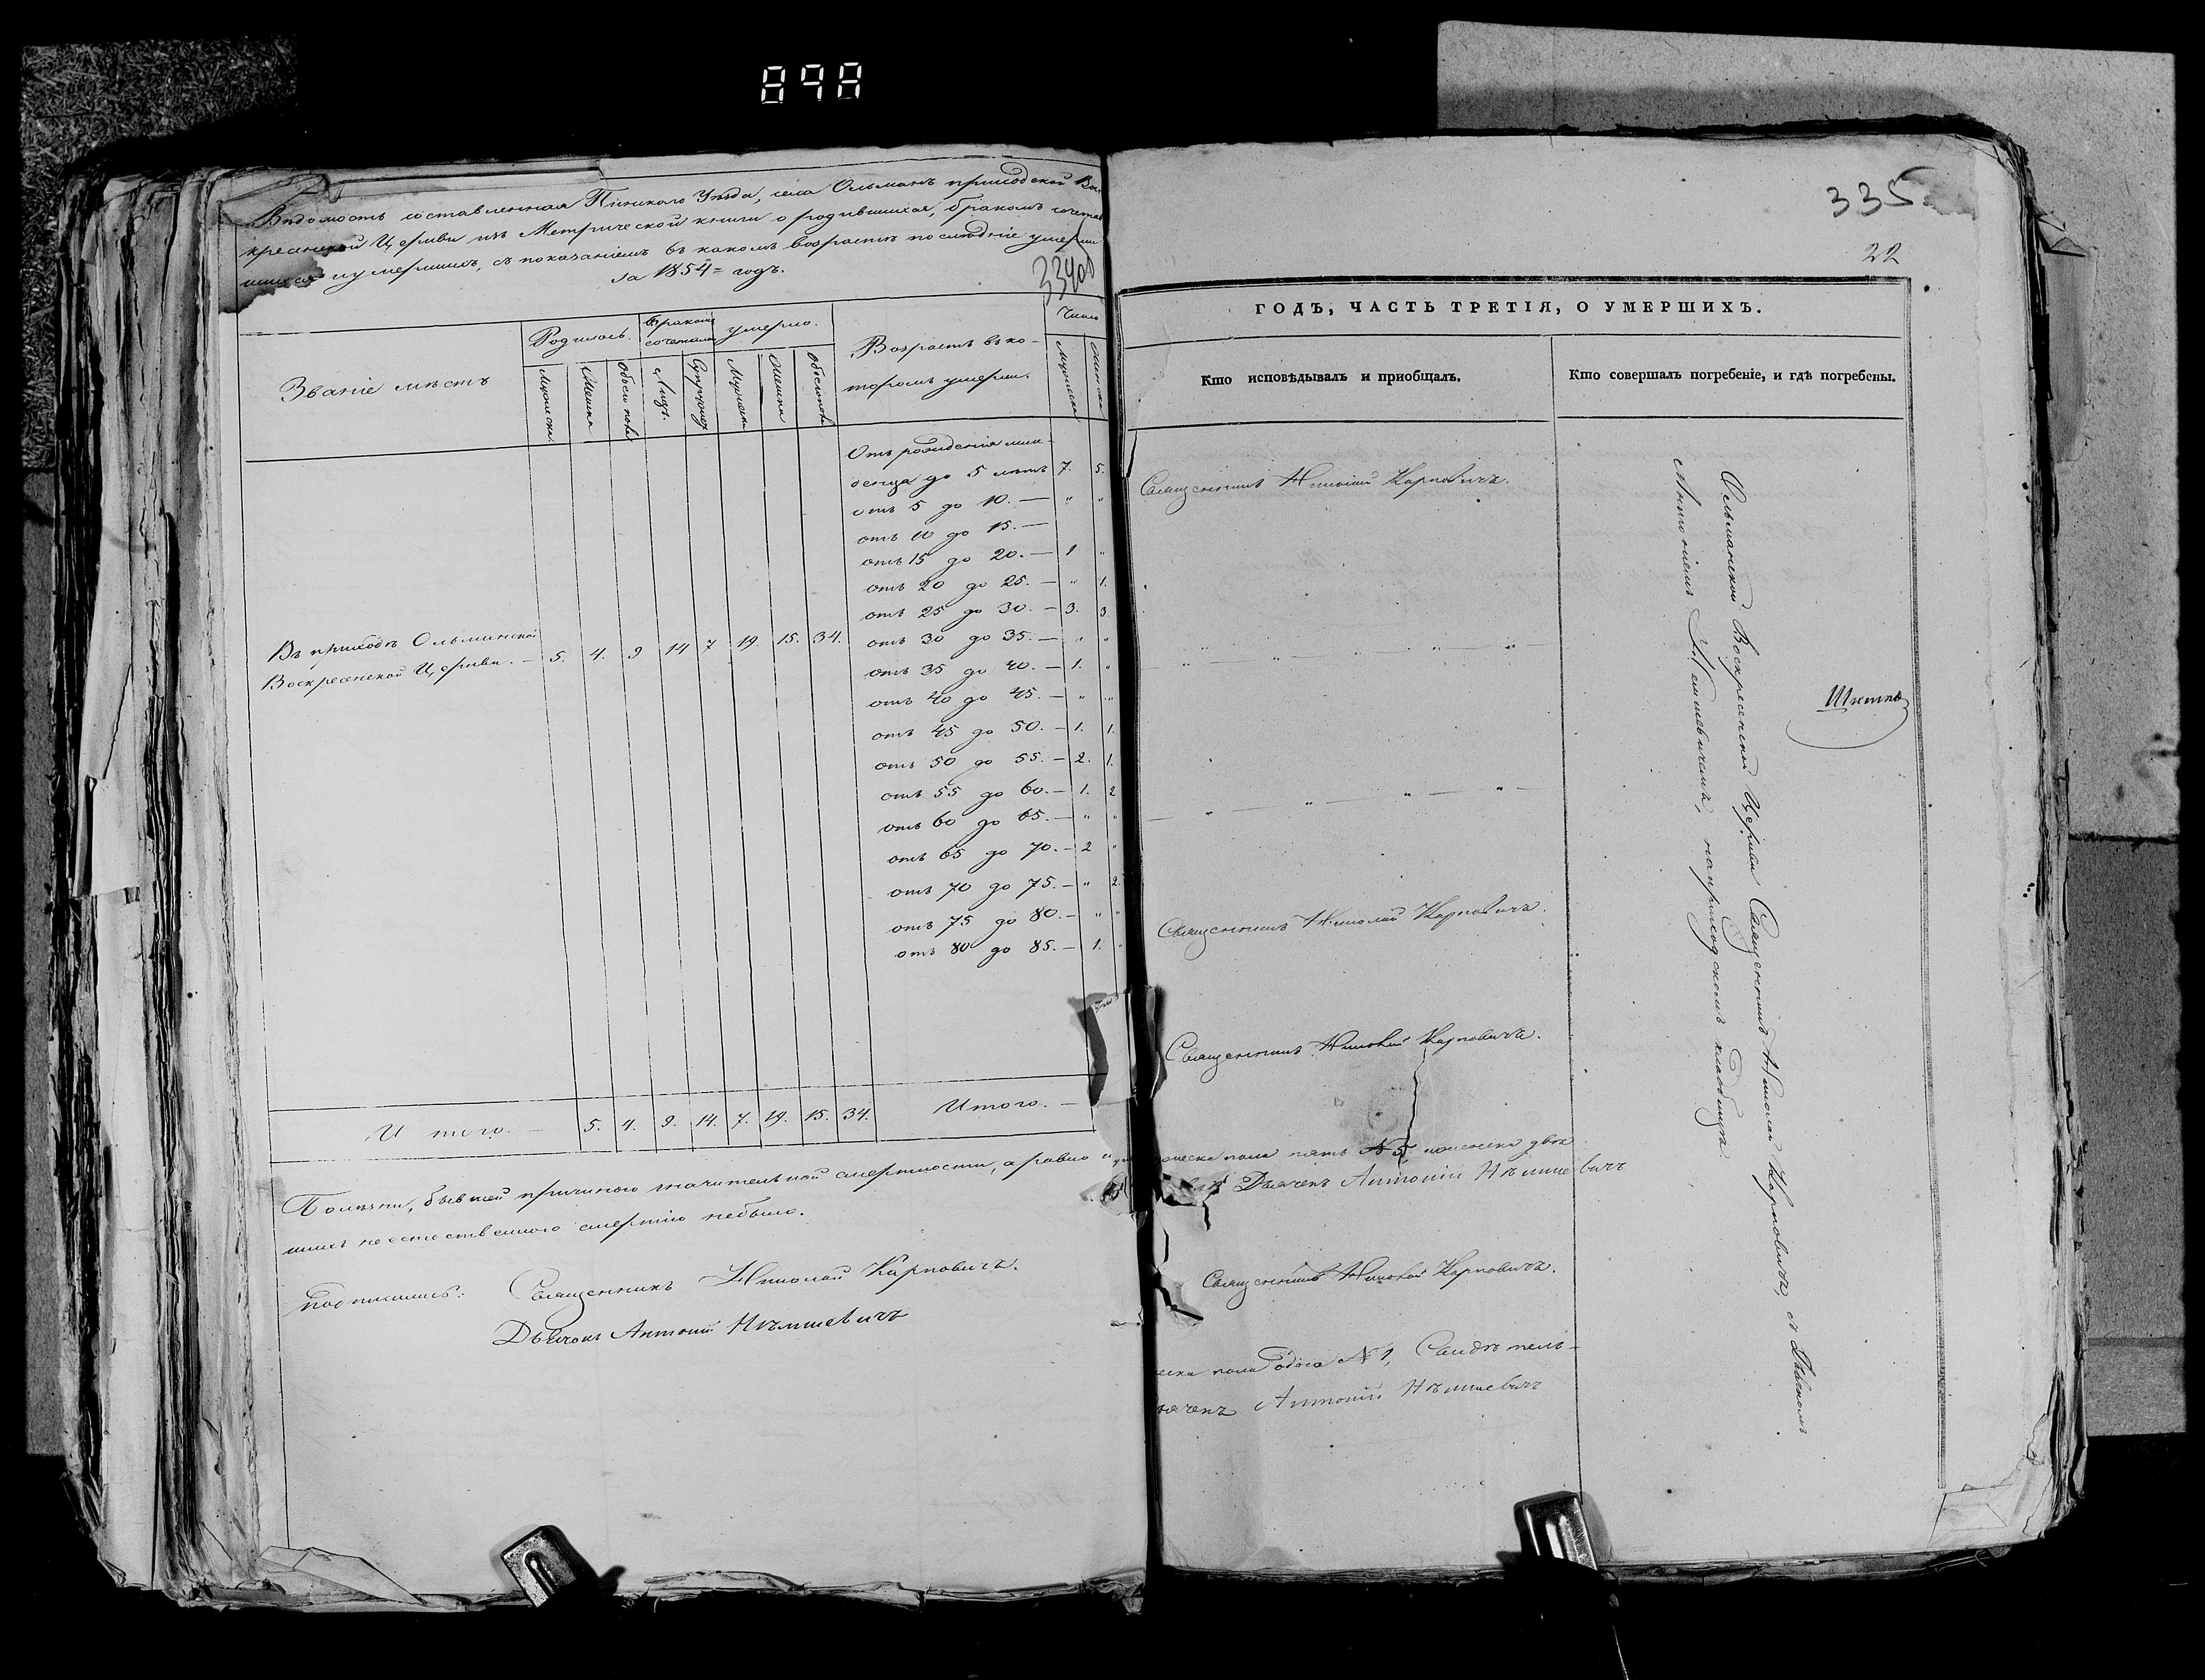 898
Вѣдомость составленная Пинскаго Уѣзда, села Ольманъ приходской Вос-
кресенской Церкви изъ Метрической книги о родившихся, бракомъ сочетав
шихся и умершихъ, съ показаніемъ въ какомъ возрастѣ послѣдніе умерли
за 1854 = годъ.
334об
Званіе мѣстъ
Родилось.
Бракомъ сочетались
умерло.
Возрастъ въ ко-
торомъ умерли.
Число
Мужеска
Женска
Обоего пола
Лицъ.
Супружес
Мужеска
Женска
Обоего пола
Мужеска
Женска
Отъ рожденія мла-
денца до 5 лѣтъ 7. 5.
отъ 5 до 10. — " "
отъ 10 до 15. —
отъ 15 до 20. — 1 "
отъ 20 до 25. — " 1.
отъ 25 до 30. — 3. 3
отъ 30 до 35. — " "
отъ 35 до 40. — 1. "
отъ 40 до 45. — " "
отъ 45 до 50. — 1. 1.
отъ 50 до 55. — 2. 1.
отъ 55 до 60. — 1. 2
отъ 60 до 65. — " "
отъ 65 до 70. — 2 "
отъ 70 до 75. — " 2.
отъ 75 до 80. — " "
отъ 80 до 85. — 1. "
Въ приходѣ Ольманской
Воскресенской Церкви. — 5. 4. 9 14 7 19. 15. 34.
И того. — 5. 4. 9. 14. 7. 19. 15. 34. Итого. —
Болѣзни, бывшей причиною значительной смертности, а равно и
шихъ неестественною смертію небыло.
Подписались: Священникъ Николай Карповичъ.
Дьячокъ Антоній Нѣмшевичъ
335
22
ГОДЪ, ЧАСТЬ ТРЕТІЯ, О УМЕРШИХЪ.
Кто исповѣдывалъ и пріобщалъ.
Кто совершалъ погребеніе, и гдѣ погребены.
Священникъ Николай Карповичъ.
Священникъ Николай Карповичъ.
Священникъ Николай Карповичъ.
жеска пола пять № 5, женска два
Дьячекъ Антоній Нѣмшевичъ
Священникъ Николай Карповичъ.
еска пола одна № 1, Свидѣтель-
ьячекъ Антоній Нѣмшевичъ
Ольманской Воскресенской Церкви Священникъ Николай Карповичъ, съ Дьячкомъ
Антоніемъ Нѣмшевичемъ, на приходскомъ кладбищѣ